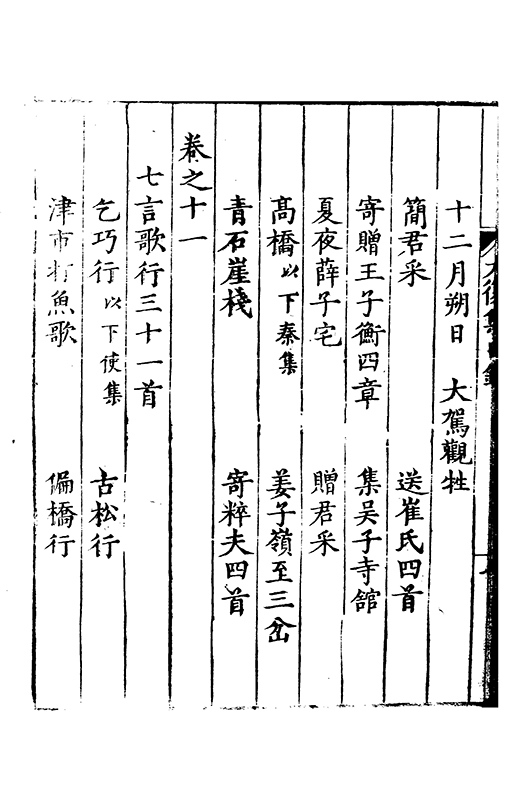 十二月朔日　大駕觀牲
簡君采　送崔氏四首
寄贈王子衡四章　集吴子寺館
夏夜薛子宅　贈君采
高橋以下秦集　姜子嶺至三岔
青石崖棧　寄粹夫四首
卷之十一
七言歌行三十一首
乞巧行以下使集　古松行
津市打魚歌　偏橋行